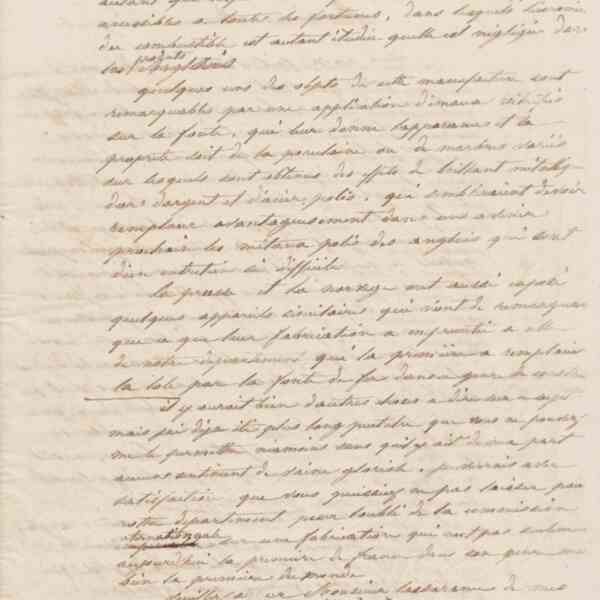 accessibles a toutes les fortunes, dans lesquels l'économie
du combustible est autant étudiée qu'elle est négligée dans
les projets Anglais
quelques uns des objets de cette manufacture sont
remarquables par une application d'émaux vitrifiés
sur la fonte, qui leur donne l'apparance et la
propreté soit de la porcelaine ou de marbres variés
sur lesquels sont obtenus des effets de brillant métallique
d'or d'argent et d'acier polis, qui sembleraient devoir
remplacer avantageusement dans un avenir
prochain les métaux polis des anglais qui sont
d'un entretien si difficile
la prusse et la norvege ont aussi exposé
quelques appareils similaires qui n'ont de remarquable
que ce que leur fabrication a emprunté a celle
de notre département qui la première a remplacé
la tole par la fonte de fer dans ce genre de
il y aurait bien d'autres choses a dire sur ce sujet
mais j'ai déja été plus long peutetre que vous ne pouvez
me le permettre néamoins sans qu'il y ait de ma part
aucun sentiment de vaine gloriole, je verrais avec
satisfaction que vous puissiez ne pas laisser pour
notre département sous l'oubli de la commission
internationale sur une fabrication qui n'est pas seulement
aujourd'hui la première de france dans son genre mais
bien la première du monde
Veuillez a Monsieur l'assurance de mes